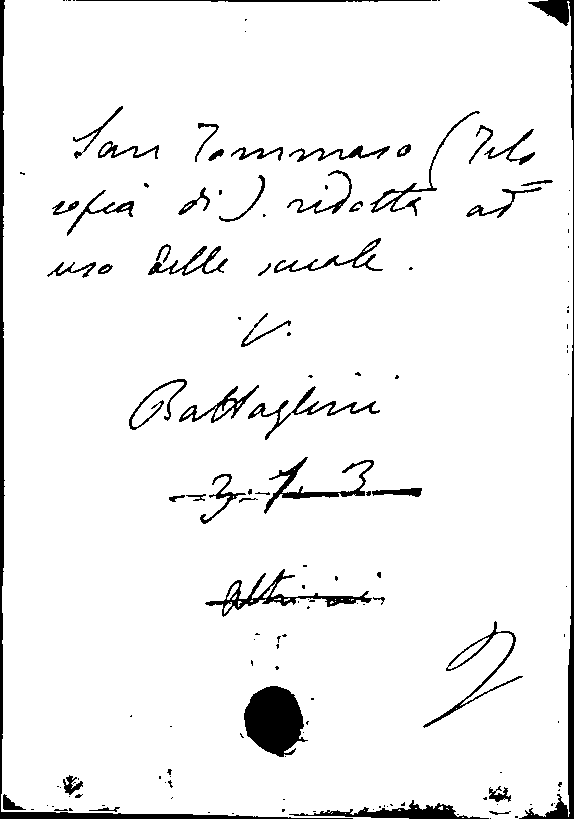 San Tommaso (Filo=
sofia di). ridotta ad
uso delle scuole.
V.
Battaglini
3.7.3